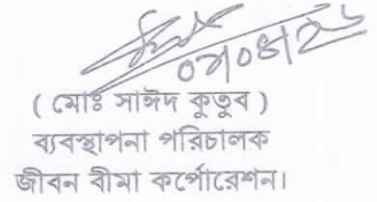 ( মোঃ সাঈদ কুতুব )
ব্যবস্থাপনা পরিচালক
জীবন বীমা কর্পোরেশন।